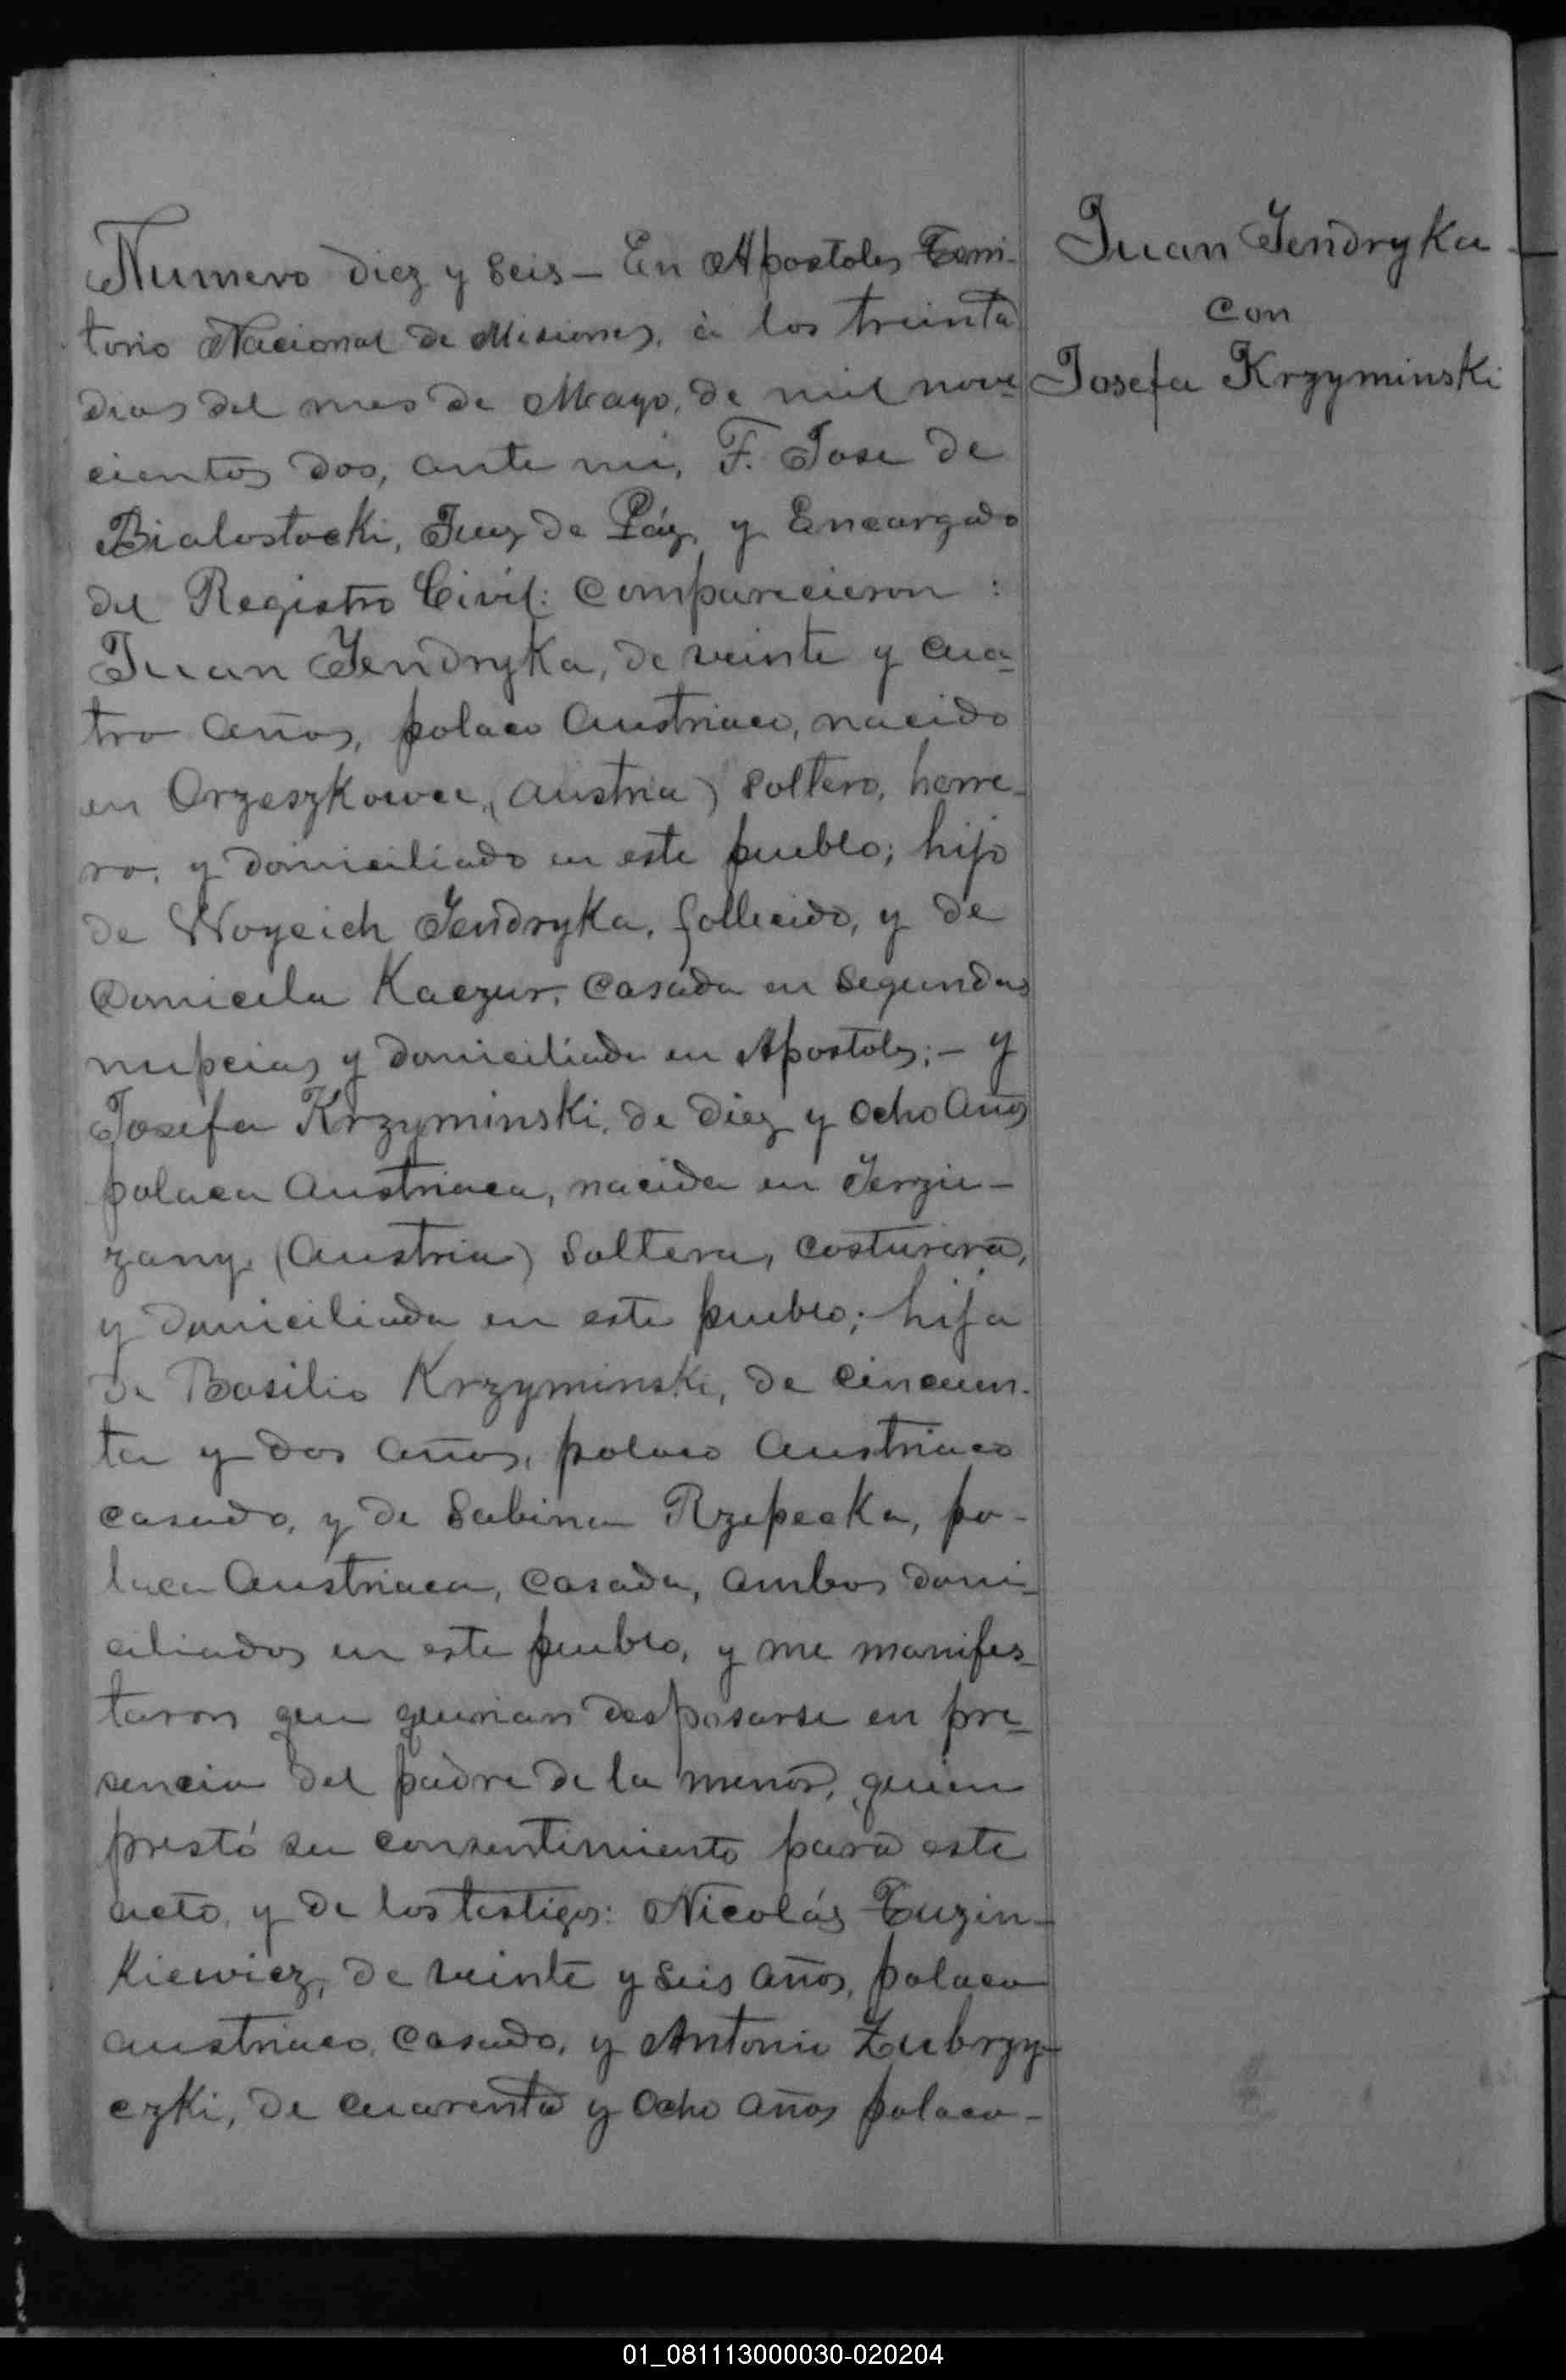 Numero diez y seis — En Apostoles Terri-
torio Nacional de Misiones, à los treinta
dias del mes de Mayo, de mil nove-
cientos dos, ante mi, F. Jose de
Bialostocki, Juez de Páz, y Encargado
del Registro Civil: comparecieron :
Juan Jendryka, de veinte y cua-
tro años, polaco austriaco, nacido
en Orzeszkowce, (Austria) soltero, herre-
ro, y domiciliado en este pueblo; hijo
de Woyeich Jendryka, fallecido, y de
Domicela Kaczur, casada en segundas
nupcias y domiciliada en Apostoles; — y
Josefa Krzyminski, de diez y ocho años
polaca austriaca, nacida en Jerzie-
zany, (Austria) soltera, costurera,
y domiciliada en este pueblo; hija
de Basilio Krzyminski, de cincuen-
ta y dos años, polaco austriaco
casado, y de Sabina Rzepecka, po-
laca austriaca, casada, ambos domi-
ciliados en este pueblo, y me manifes-
taron que querian desposarse en pre-
sencia del padre de la menor, quien
prestó su consentimiento para este
acto, y de los testigos: Nicolás Tuzin-
kiewicz, de veinte y seis años, polaco
austriaco, casado, y Antonio Zubrzy-
czki, de cuarenta y ocho años polaco-
Juan Jendryka
con
Josefa Krzyminski
01_081113000030-020204